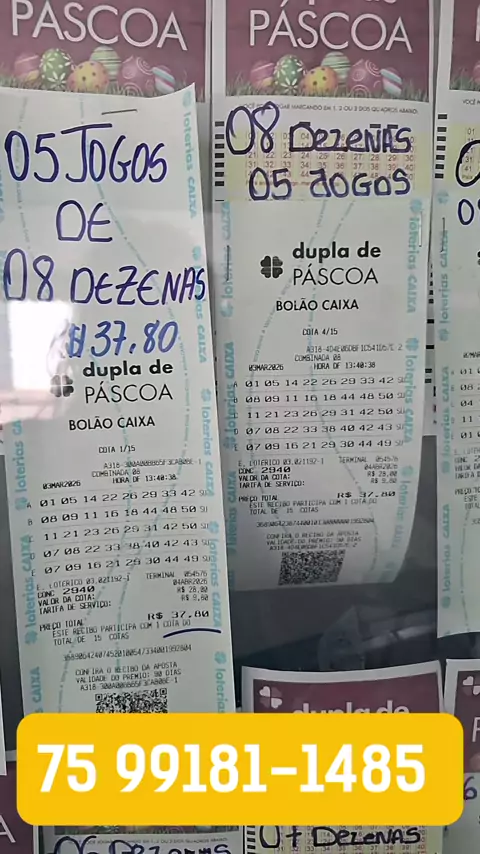 PÁSCOA
05 JOGOS
DE
08 DEZENAS
R$ 37.80
dupla de
PÁSCOA
BOLÃO CAIXA
COTA 1/15
COMBINADA 08
03MAR2026 HORA DF 13:40:38
A 01 05 14 22 26 29 33 42
B 08 09 11 16 18 44 48 50
C 11 21 23 26 29 31 42 50
D 07 08 22 33 38 40 42 43
E 07 09 16 21 29 30 44 49
E. LOTERICO 03.021192-1 TERMINAL 054576
CONC 2940 04ABR2026
VALOR DA COTA: R$ 28,00
TARIFA DE SERVIÇO: R$ 9,80
PREÇO TOTAL R$ 37.80
ESTE RECIBO PARTICIPA COM 1 COTA DO
TOTAL DE 15 COTAS
CONFIRA O RECIBO DA APOSTA
VALIDADE DO PREMIO: 90 DIAS
PÁSCOA
08 DEZENAS
05 JOGOS
dupla de
PÁSCOA
BOLÃO CAIXA
COTA 4/15
COMBINADA 08
03MAR2026 HORA DF 13:40:38
A 01 05 14 22 26 29 33 42
B 08 09 11 16 18 44 48 50
C 11 21 23 26 29 31 42 50
D 07 08 22 33 38 40 42 43
E 07 09 16 21 29 30 44 49
E. LOTERICO 03.021192-1 TERMINAL 054576
CONC 2940 04ABR2026
VALOR DA COTA: R$ 28,00
TARIFA DE SERVIÇO: R$ 9,80
PREÇO TOTAL R$ 37.80
ESTE RECIBO PARTICIPA COM 1 COTA DO
TOTAL DE 15 COTAS
CONFIRA O RECIBO DA APOSTA
VALIDADE DO PREMIO: 90 DIAS
loterias CAIXA
dupla de
75 99181-1485
06 DEZENAS
07 DEZENAS